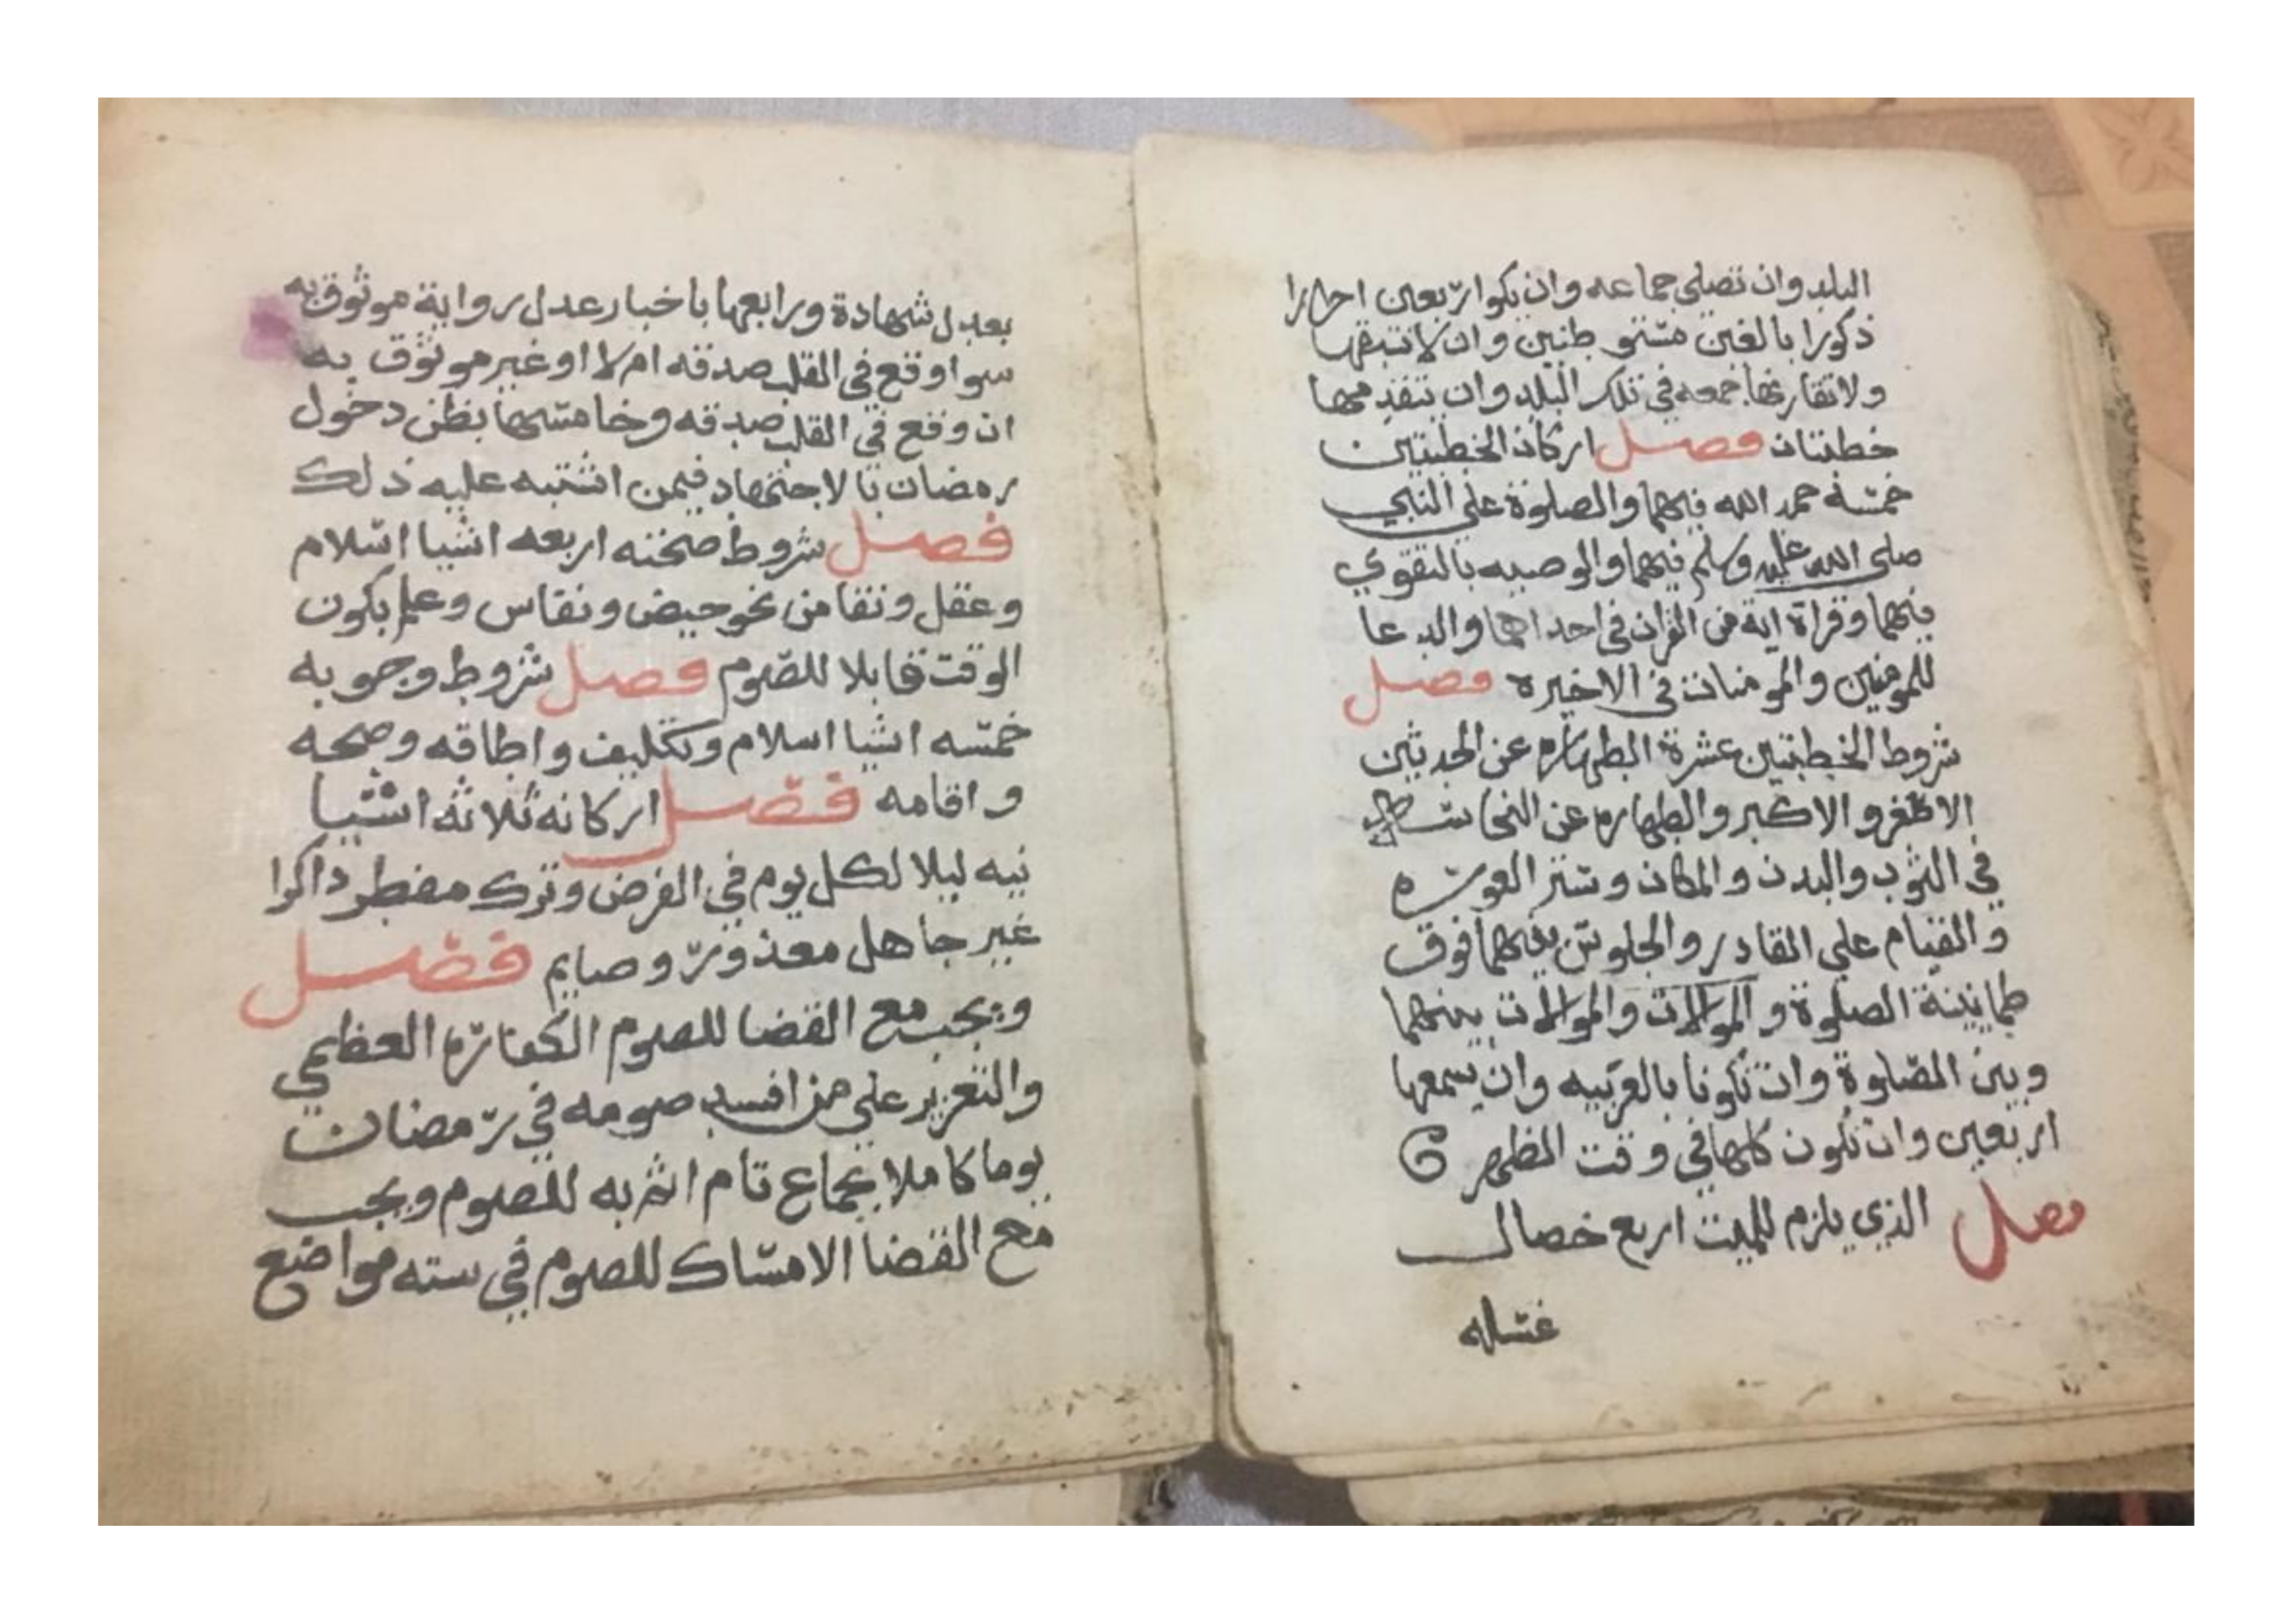 البلد وان تصلي جماعه وان يكوا اربعين احرارا
ذكورا بالغين مستوطنين وان لا تسبقها
ولا تقارنها جمعه في تلك البلد وان يتقدمها
خطبتان فصل اركان الخطبتين
خمسة حمد الله فيهما والصلوة على النبي
صلى الله عليه وسلم فيهما والوصيه بالتقوي
فيهما وقراة اية من القران في احداهما والدعا
للمومنين والمومنات في الاخيره فصل
شروط الخطبتين عشرة الطهاره عن الحدثين
الاصغر والاكبر والطهاره عن النجاسه
في الثوب والبدن والمكان وستر العوره
والقيام على القادر والجلوس بينهما فوق
طمانينة الصلوة والموالات والموالات بينهما
وبين الصلوة وان تكونا بالعربيه وان يسمعها
اربعين وان تكون كلها في وقت الظهر
فصل الذي يلزم للميت اربع خصال
غسله
بعدل شهادة ورابعها باخبار عدل رواية موثوق به
سوا وقع في القلب صدقه ام لا او غير موثوق به
ان وقع في القلب صدقه وخامسها بظن دخول
رمضان بالاجتهاد فيمن اشتبه عليه ذلك
فصل شروط صحته اربعه اشيا اسلام
وعقل ونقا من نحو حيض ونفاس وعلم بكون
الوقت قابلا للصوم فصل شروط وجوبه
خمسه اشيا اسلام وتكليف واطاقه وصحه
واقامه فصل اركانه ثلاثه اشيا
نيه ليلا لكل يوم في الفرض وترك مفطر ذاكرا
غير جاهل معذور وصايم فصل
ويجب مع القضا للصوم الكفاره العظمي
والتعزير على من افسد صومه في رمضان
يوما كاملا بجماع تام اثم به للصوم ويجب
مع القضا الامساك للصوم في سته مواضع